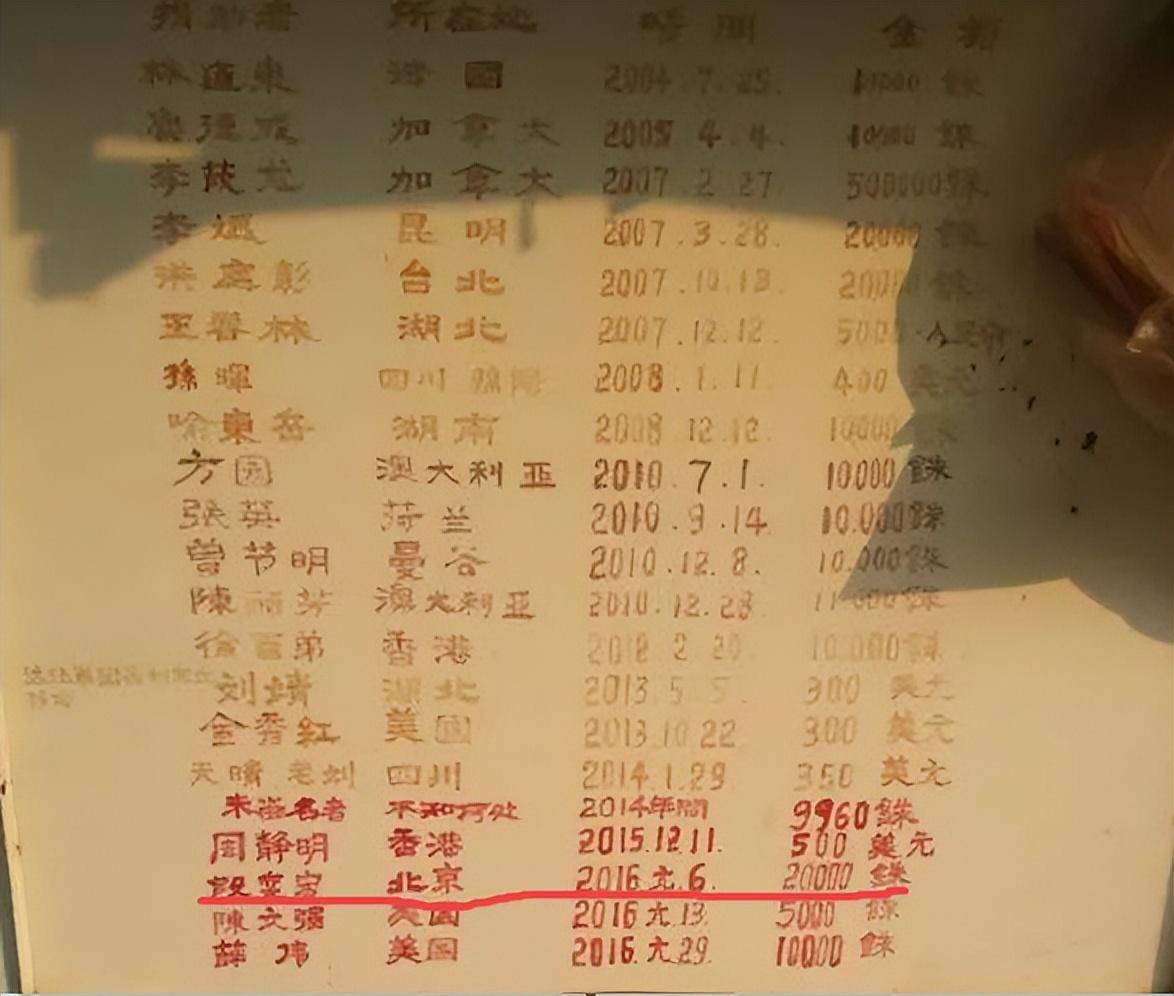 捐助者 所在地 時間 金額
林 東 泰國 2004.7.25. 10000 銖
加拿大 2005.4.4. 10000 銖
李 龙 加拿大 2007.2.27. 500000銖
李 昆明 2007.3.28. 20000 銖
洪 彭 台北 2007.10.13. 20000 銖
王春林 湖北 2007.12.12. 5000 人民币
孫暉 四川 2008.1.11. 400 美元
喻東岳 湖南 2008.12.12. 10000 銖
方园 澳大利亚 2010.7.1. 10000 銖
張英 荷兰 2010.9.14. 10.000銖
曾节明 曼谷 2010.12.8. 10.000銖
陳丽芬 澳大利亚 2010.12.28. 11.000銖
徐百弟 香港 2012.2.20. 10.000銖
刘靖 湖北 2013.5.5. 300 美元
金秀红 美国 2013.10.22 300 美元
天晴老刘 四川 2014.1.29. 350 美元
未 名者 不知何处 2014年間 9960銖
周静明 香港 2015.12.11. 500 美元
北京 2016.元.6. 20000 銖
陳文强 美国 2016.元.13. 5000 銖
薛伟 美国 2016.元.29. 10000 銖